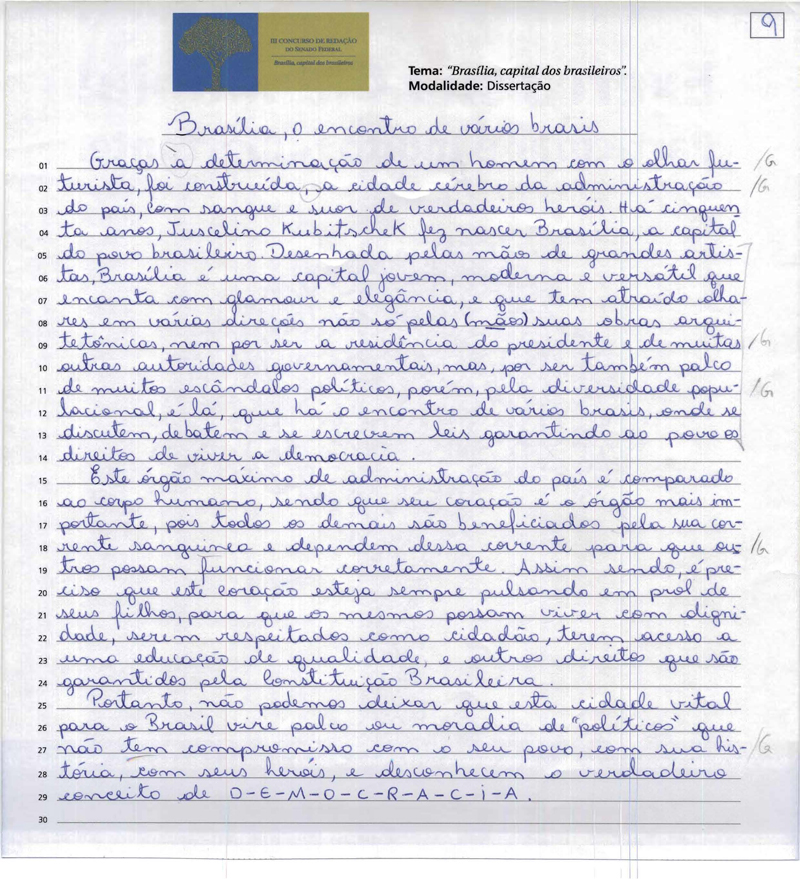 9
III CONCURSO DE REDAÇÃO
DO SENADO FEDERAL
Brasília, capital dos brasileiros
Tema: "Brasília, capital dos brasileiros".
Modalidade: Dissertação
Brasília, o encontro de vários brasis
01 Graças à determinação de um homem com o olhar fu- /G
02 turista, foi construída, a cidade cérebro da administração /G
03 do país, com sangue e suor de verdadeiros heróis. Há cinquen
04 ta anos, Juscelino Kubitschek fez nascer Brasília, a capital
05 do povo brasileiro. Desenhada pelas mãos de grandes artis-
06 tas, Brasília é uma capital jovem, moderna e versátil que
07 encanta com glamour e elegância, e que tem atraído olha-
08 res em várias direções não só pelas (mãos) suas obras arqui-
09 tetônicas, nem por ser a residência do presidente e de muitas /G
10 outras autoridades governamentais, mas, por ser também palco
11 de muitos escândalos políticos, porém, pela diversidade popu- /G
12 lacional, é lá, que há o encontro de vários brasis, onde se
13 discutem, debatem e se escrevem leis garantindo ao povo os
14 direitos de viver a democracia.
15 Este órgão máximo de administração do país é comparado
16 ao corpo humano, sendo que seu coração é o órgão mais im-
17 portante, pois todos os demais são beneficiados pela sua cor-
18 rente sanguinea e dependem dessa corrente para que ou- /G
19 tros possam funcionar corretamente. Assim sendo, é pre-
20 ciso que este coração esteja sempre pulsando em prol de
21 seus filhos, para que os mesmos possam viver com digni-
22 dade, serem respeitados como cidadão, terem acesso a
23 uma educação de qualidade, e outros direitos que são
24 garantidos pela Constituição Brasileira.
25 Portanto, não podemos deixar que esta cidade vital
26 para o Brasil vire palco ou moradia de "políticos" que
27 não tem compromisso com o seu povo, com sua his- /G
28 tória, com seus heróis, e desconhecem o verdadeiro
29 conceito de D-E-M-O-C-R-A-C-i-A.
30